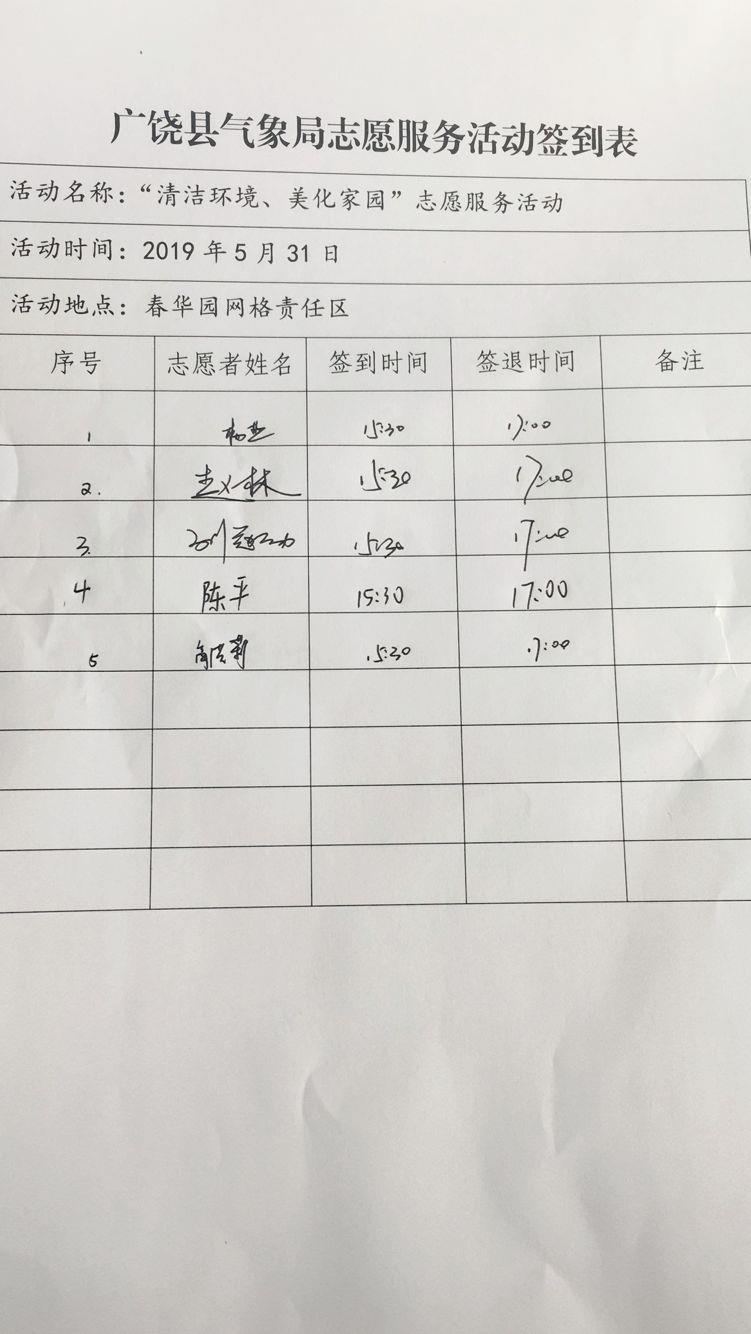 广饶县气象局志愿服务活动签到表
活动名称：“清洁环境、美化家园”志愿服务活动
活动时间：2019 年 5 月 31 日
活动地点：春华园网格责任区
序号 志愿者姓名 签到时间 签退时间 备注
1 15:30 17:00
2. 赵义林 15:30 17:00
3. 15:30 17:00
4 陈平 15:30 17:00
5 15:30 17:00